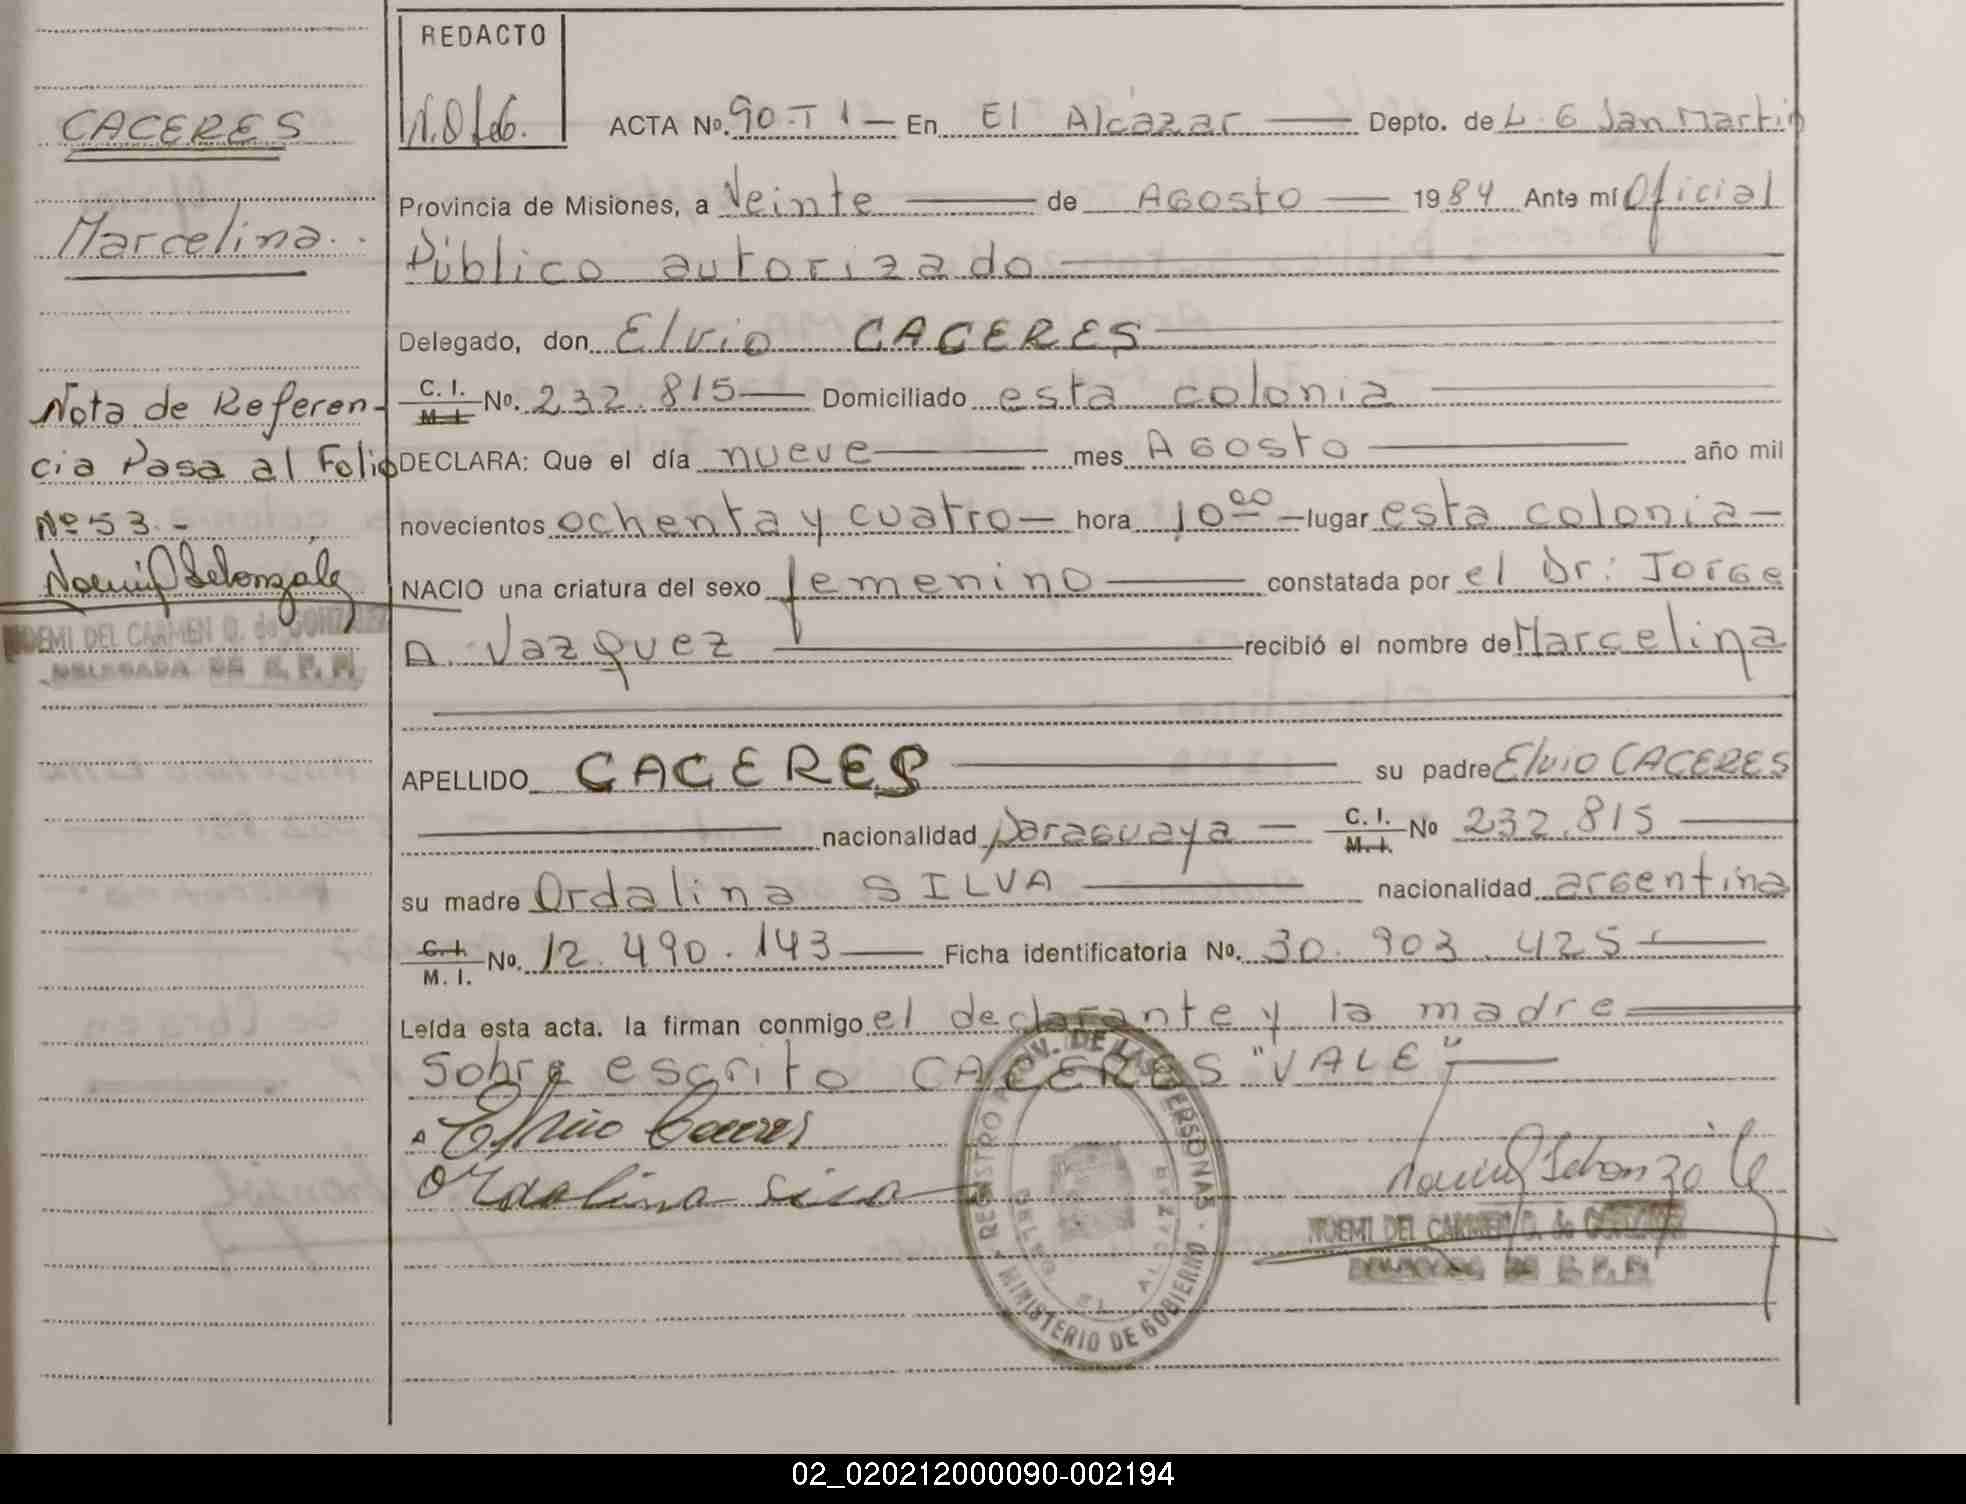 REDACTO
N.O de G.
CACERES
Marcelina
Nota de Referen-
cia Pasa al Folio
Nº 53.-
NOEMI DEL CARMEN O. de GONZALEZ
DELEGADA DE R. P. P.
ACTA Nº. 90-T 1 — En El Alcázar — Depto. de L. G San Martin
Provincia de Misiones, a Veinte — de Agosto — 1984 Ante mí Oficial
Público autorizado
Delegado, don Elvio CACERES
C. I. M. I. Nº. 232.815 — Domiciliado esta colonia
DECLARA: Que el día nueve — mes Agosto — año mil
novecientos ochenta y cuatro — hora 10⁰⁰ — lugar esta colonia —
NACIO una criatura del sexo femenino — constatada por el Dr: Jorge
A. Vazquez — recibió el nombre de Marcelina
APELLIDO CACERES — su padre Elvio CACERES
— nacionalidad paraguaya — C. I. M. I. Nº 232.815 —
su madre Ordalina SILVA — nacionalidad argentina
C. I. M. I. Nº. 12.490.143 — Ficha identificatoria Nº. 30.903.425 —
Leída esta acta. la firman conmigo el declarante y la madre
Sobre escrito CACERES "VALE" —
Elvio Caceres
Ordalina Silva
REGISTRO PROV. DE LAS PERSONAS
MINISTERIO DE GOBIERNO
EL ALCAZAR
NOEMI DEL CARMEN O. de GONZALEZ
DELEGADA DE R. P. P.
02_020212000090-002194